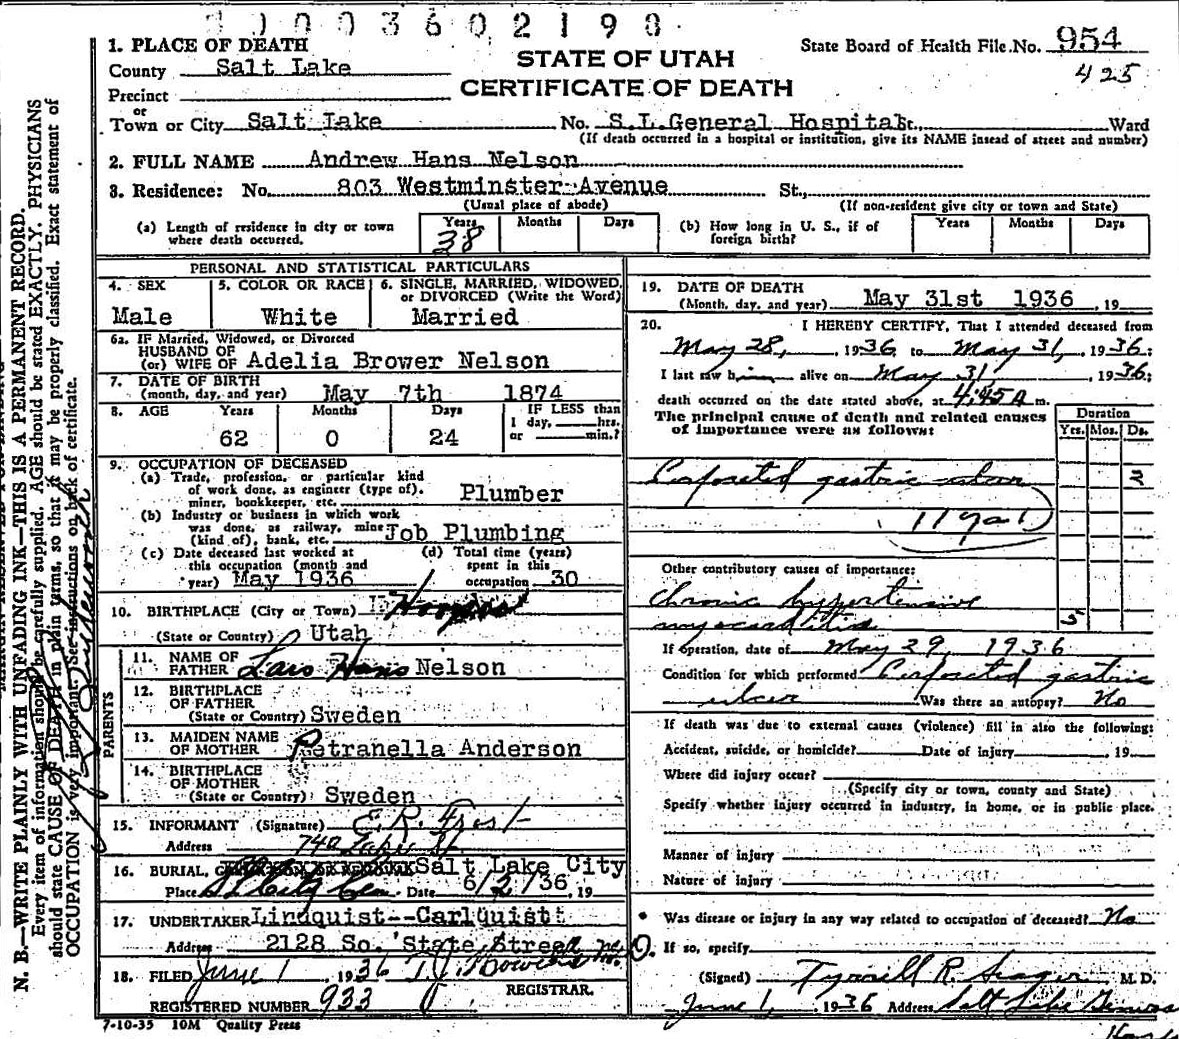 0003602190
1. PLACE OF DEATH
STATE OF UTAH
CERTIFICATE OF DEATH
State Board of Health File No. 954
425
County Salt Lake
Precinct
or
Town or City Salt Lake No. S.L.General Hospital St., Ward
(If death occurred in a hospital or institution, give its NAME insead of street and number)
2. FULL NAME Andrew Hans Nelson
3. Residence: No. 803 Westminster Avenue St.,
(Usual place of abode) (If non-resident give city or town and State)
(a) Length of residence in city or town where death occurred. Years 38 Months Days
(b) How long in U. S., if of foreign birth? Years Months Days
PERSONAL AND STATISTICAL PARTICULARS
4. SEX 5. COLOR OR RACE 6. SINGLE, MARRIED, WIDOWED, or DIVORCED (Write the Word)
Male White Married
6a. IF Married, Widowed, or Divorced
HUSBAND OF
(or) WIFE OF Adelia Brower Nelson
7. DATE OF BIRTH
(month, day, and year) May 7th 1874
8. AGE Years Months Days IF LESS than
1 day, hrs.
or min.?
62 0 24
9. OCCUPATION OF DECEASED
(a) Trade, profession, or particular kind
of work done, as engineer (type of).
miner, bookkeeper, etc. Plumber
(b) Industry or business in which work
was done, as railway, mine
(kind of), bank, etc. Job Plumbing
(c) Date deceased last worked at
this occupation (month and
year) May 1936
(d) Total time (years)
spent in this
occupation 30
10. BIRTHPLACE (City or Town)
(State or Country) Utah
PARENTS
11. NAME OF
FATHER Lars Hans Nelson
12. BIRTHPLACE
OF FATHER
(State or Country) Sweden
13. MAIDEN NAME
OF MOTHER Petranella Anderson
14. BIRTHPLACE
OF MOTHER
(State or Country) Sweden
15. INFORMANT (Signature) E. R. Frost
Address 740
16. BURIAL, Salt Lake City
Place Date 6/2/36, 19
17. UNDERTAKER Lindquist--Carlquist
Address 2128 So. State Street
18. FILED June 1 1936
REGISTRAR.
REGISTERED NUMBER 933
7-10-35 10M Quality Press
19. DATE OF DEATH
(Month, day, and year) May 31st 1936, 19
20. I HEREBY CERTIFY, That I attended deceased from
May 28, 1936 to May 31, 1936:
I last saw him alive on May 31, 1936;
death occurred on the date stated above, at 4:45 A m.
The principal cause of death and related causes
of importance were as follows:
Duration
Yrs. Mos. Ds.
Perforated gastric ulcer 2
Other contributory causes of importance:
Chronic hypertensive
myocarditis 5
If operation, date of May 29, 1936
Condition for which performed Perforated gastric
ulcer Was there an autopsy? No
If death was due to external causes (violence) fill in also the following:
Accident, suicide, or homicide? Date of injury 19
Where did injury occur?
(Specify city or town, county and State)
Specify whether injury occurred in industry, in home, or in public place.
Manner of injury
Nature of injury
Was disease or injury in any way related to occupation of deceased? No
If so, specify
(Signed) Tyrrell R. Seager M. D.
June 1, 1936 Address Salt Lake General
N. B.—WRITE PLAINLY WITH UNFADING INK—THIS IS A PERMANENT RECORD.
Every item of information should be carefully supplied. AGE should be stated EXACTLY. PHYSICIANS
should state CAUSE OF DEATH in plain terms, so that it may be properly classified. Exact statement of
OCCUPATION is very important. See instructions on back of certificate.